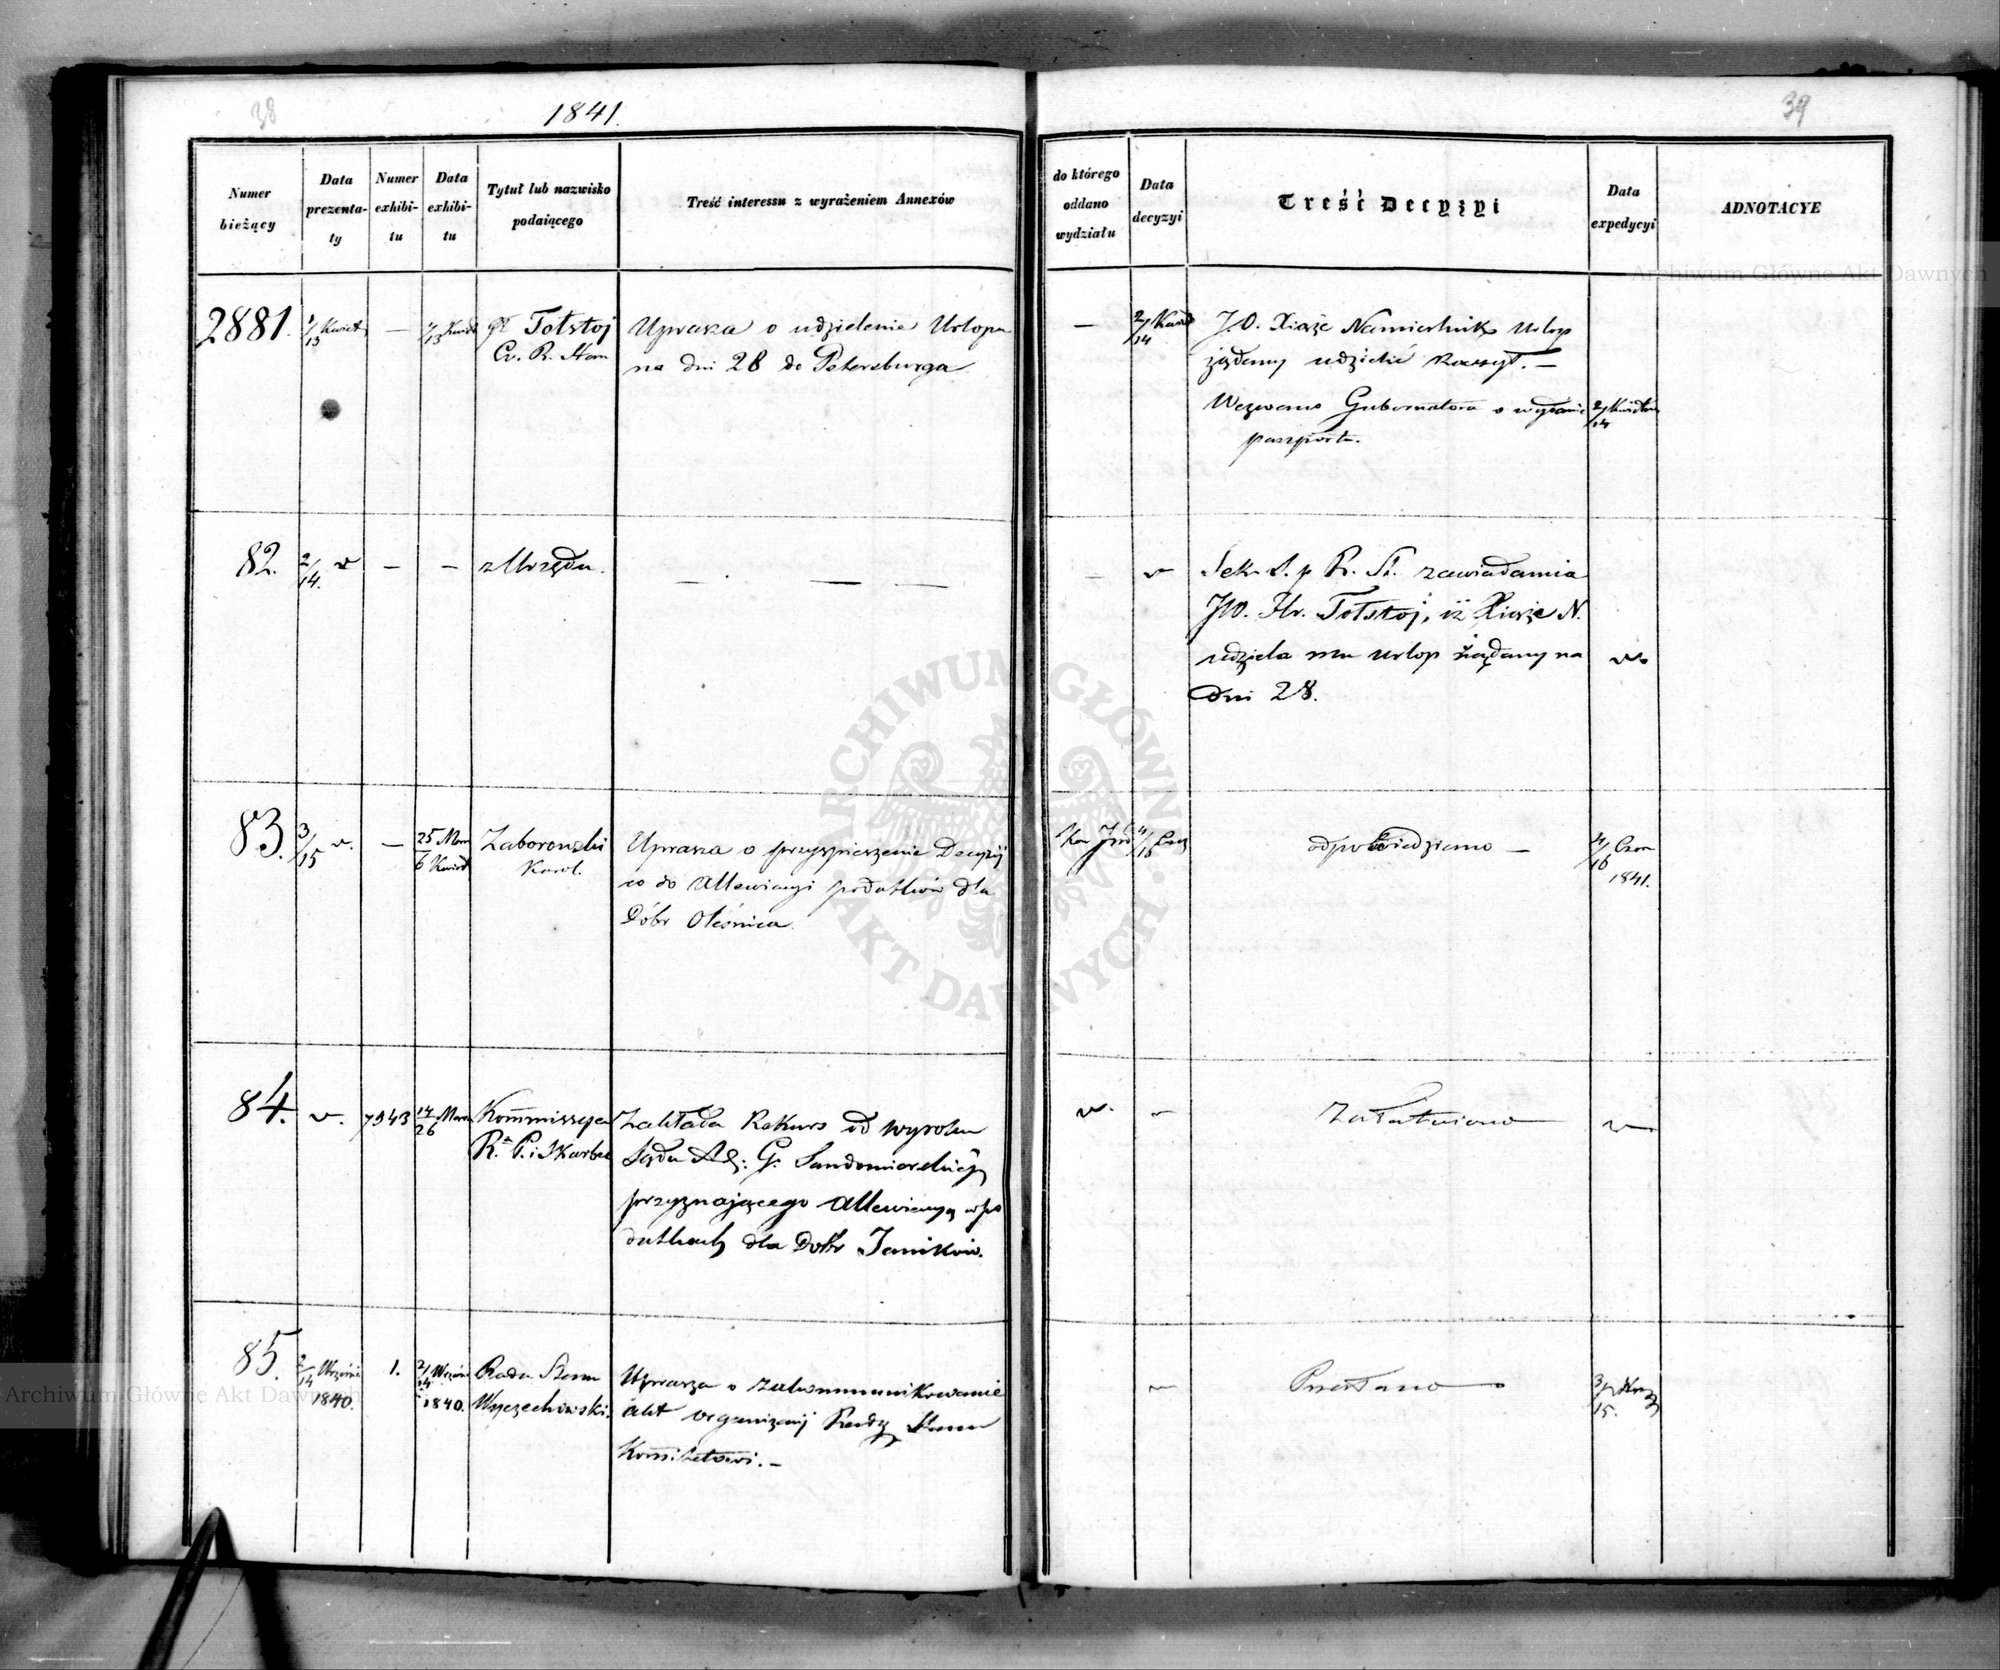 38
1841.
39
Numer bieżący
Data prezenta-ty
Numer exhibi-tu
Data exhibi-tu
Tytuł lub nazwisko podaiącego
Treść interessu z wyrażeniem Annexów
do którego oddano wydziału
Data decyzyi
Treść Decyzyi
Data expedycyi
ADNOTACYE
2881.
1/13 Kwiet
—
1/13 Kwiet
Tołstoj
Uprasza o udzielenie Urlopu
na dni 28 do Petersburga
—
2/14 Kwiet
J.O. Xiąże Namiestnik Urlop
żądany udzielić raczył. —
Wezwano Gubernatora o wydanie
paszportu.
2/14 Kwietnia
82.
2/14.
—
—
z Urzędu.
— . — —
—
Sek. S. p R. St. zawiadamia
JW. Hr. Tołstoj, iż Xiąże N.
udziela mu urlop żądany na
Dni 28.
83.
3/15
—
25 Mar
6 Kwiet
Zaborowski
Karol.
Uprasza o przyspieszenie Decyzij
co do Allewiacyi podatków dla
Dóbr Oleśnica.
4/16 Czer
odpowiedziano —
4/16 Czer
1841.
84.
7943
14/26 Marca
Kommissya
R. P. i Skarbu
Zakłada Rekurs od wyroku
Sądu Ad: G. Sandomierskiej
przyznającego Allewiacyą w po
datkach dla Dóbr Janików.
Załatwiono
85.
2/14 Września
1840.
1.
2/14 Wrześ
1840.
Radca Stanu
Wyczechowski.
Uprasza o zakommunikowanie
akt organizacij Rady Stanu
Komitetowi. —
Przesłano
3/15.
ARCHIWUM GŁÓWNE AKT DAWNYCH
Archiwum Główne Akt Dawnych
Archiwum Główne Akt Dawnych